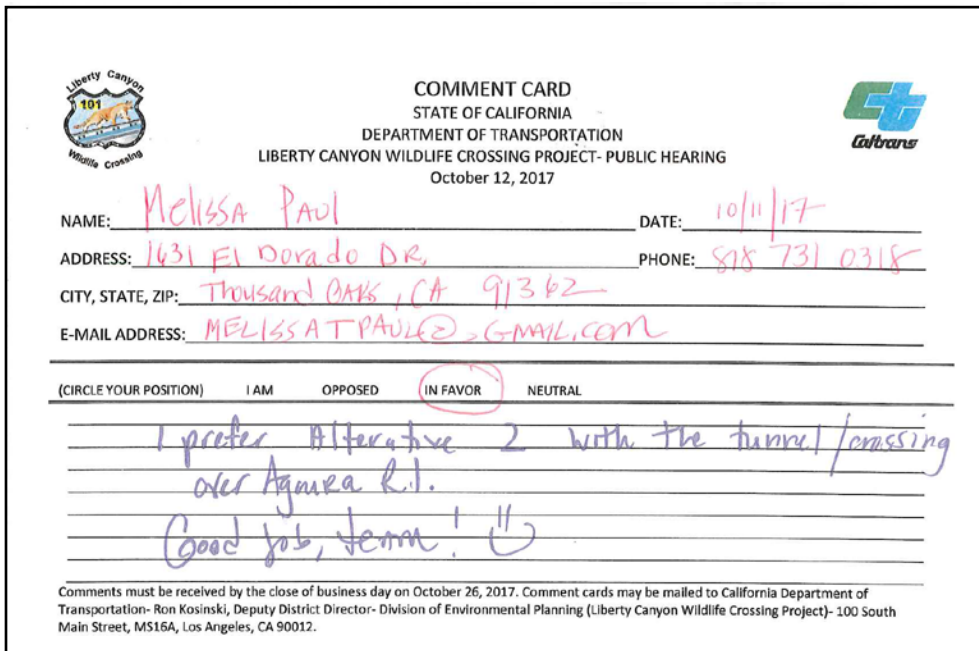 Liberty Canyon
101
Wildlife Crossing
COMMENT CARD
STATE OF CALIFORNIA
DEPARTMENT OF TRANSPORTATION
LIBERTY CANYON WILDLIFE CROSSING PROJECT- PUBLIC HEARING
October 12, 2017
Caltrans
NAME: Melissa Paul DATE: 10/11/17
ADDRESS: 1631 El Dorado DR, PHONE: 818 731 0318
CITY, STATE, ZIP: Thousand OAKS, CA 91362
E-MAIL ADDRESS: MELISSATPAUL@GMAIL.com
(CIRCLE YOUR POSITION) I AM OPPOSED IN FAVOR NEUTRAL
I prefer Alterative 2 with the tunnel/crossing
over Agoura Rd.
Good job, team!
Comments must be received by the close of business day on October 26, 2017. Comment cards may be mailed to California Department of
Transportation- Ron Kosinski, Deputy District Director- Division of Environmental Planning (Liberty Canyon Wildlife Crossing Project)- 100 South
Main Street, MS16A, Los Angeles, CA 90012.